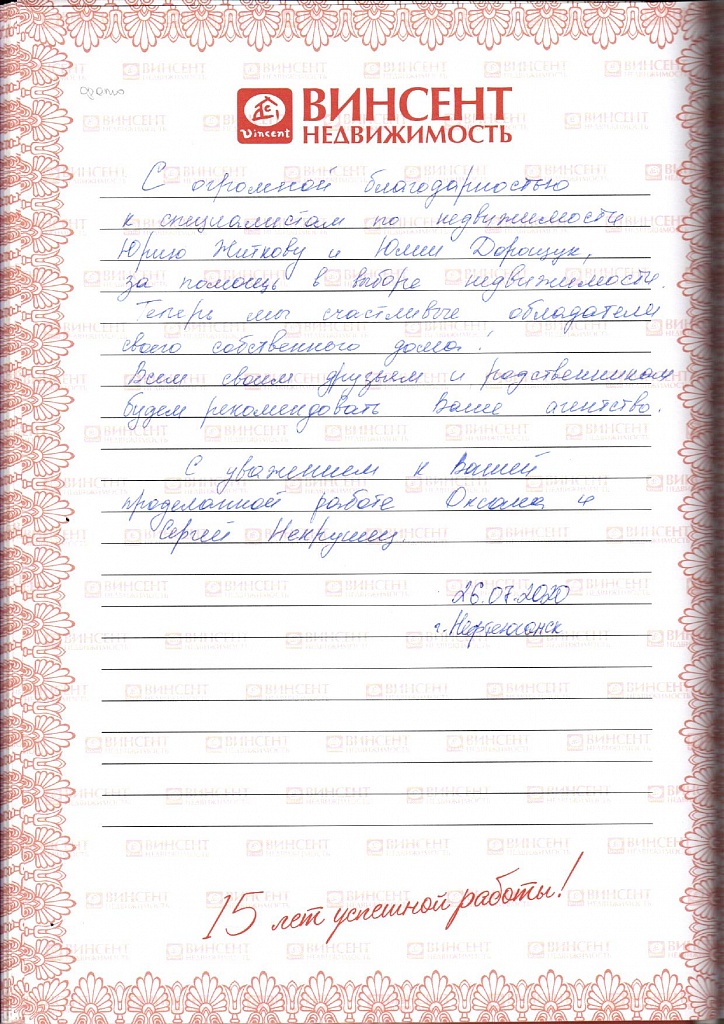 ВИНСЕНТ
НЕДВИЖИМОСТЬ
Vincent
С огромной благодарностью
к специалистам по недвижимости
Юрию Житкову и Юлии Дорощук,
за помощь в выборе недвижимости.
Теперь мы счастливые обладатели
своего собственного дома!
Всем своим друзьям и родственникам
будем рекомендовать Ваше агентство.
С уважением к Вашей
проделанной работе Оксана и
Сергей Некрушец.
26.07.2020
г. Нефтеюганск
15 лет успешной работы!